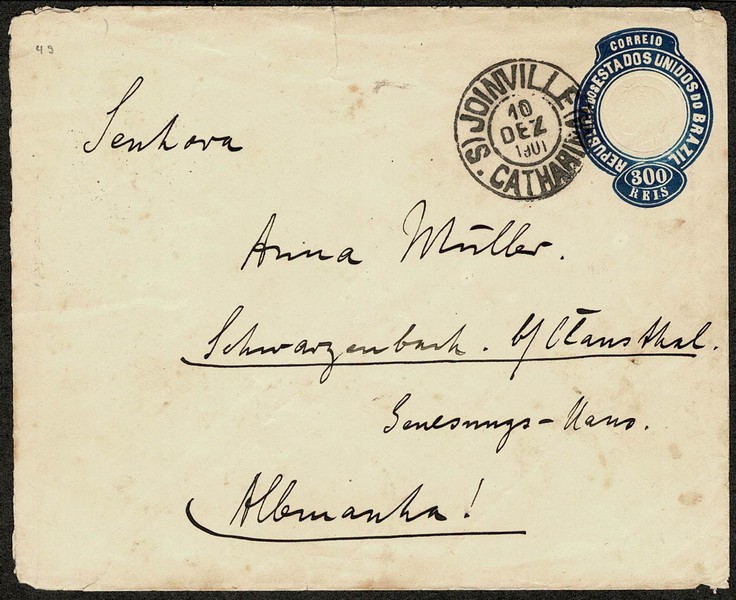 49
CORREIO
REPUBLICA DOS ESTADOS UNIDOS DO BRAZIL
300
REIS
JOINVILLE
10
DEZ
1901
(S. CATHARINA)
Senhora
Anna Müller.
Schwarzenbach. b/ Clausthal.
Genesungs-Haus.
Allemanha!